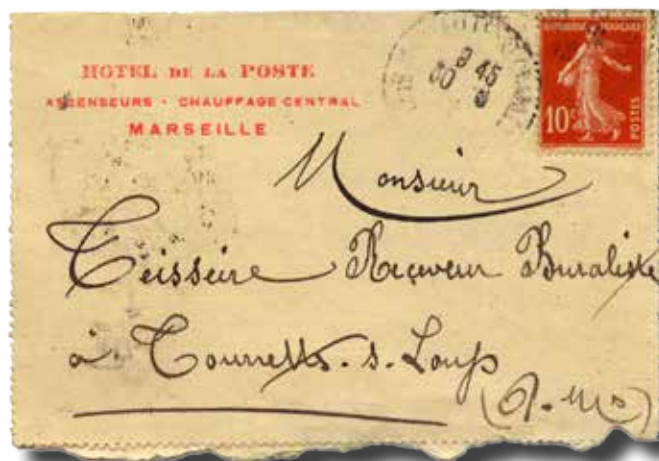 HOTEL DE LA POSTE
ASCENSEURS - CHAUFFAGE CENTRAL
MARSEILLE
9 45
RÉPUBLIQUE FRANÇAISE
10c
POSTES
Monsieur
Teisseire Receveur Buraliste
à Tourrettes-s-Loup
(A-Mes)